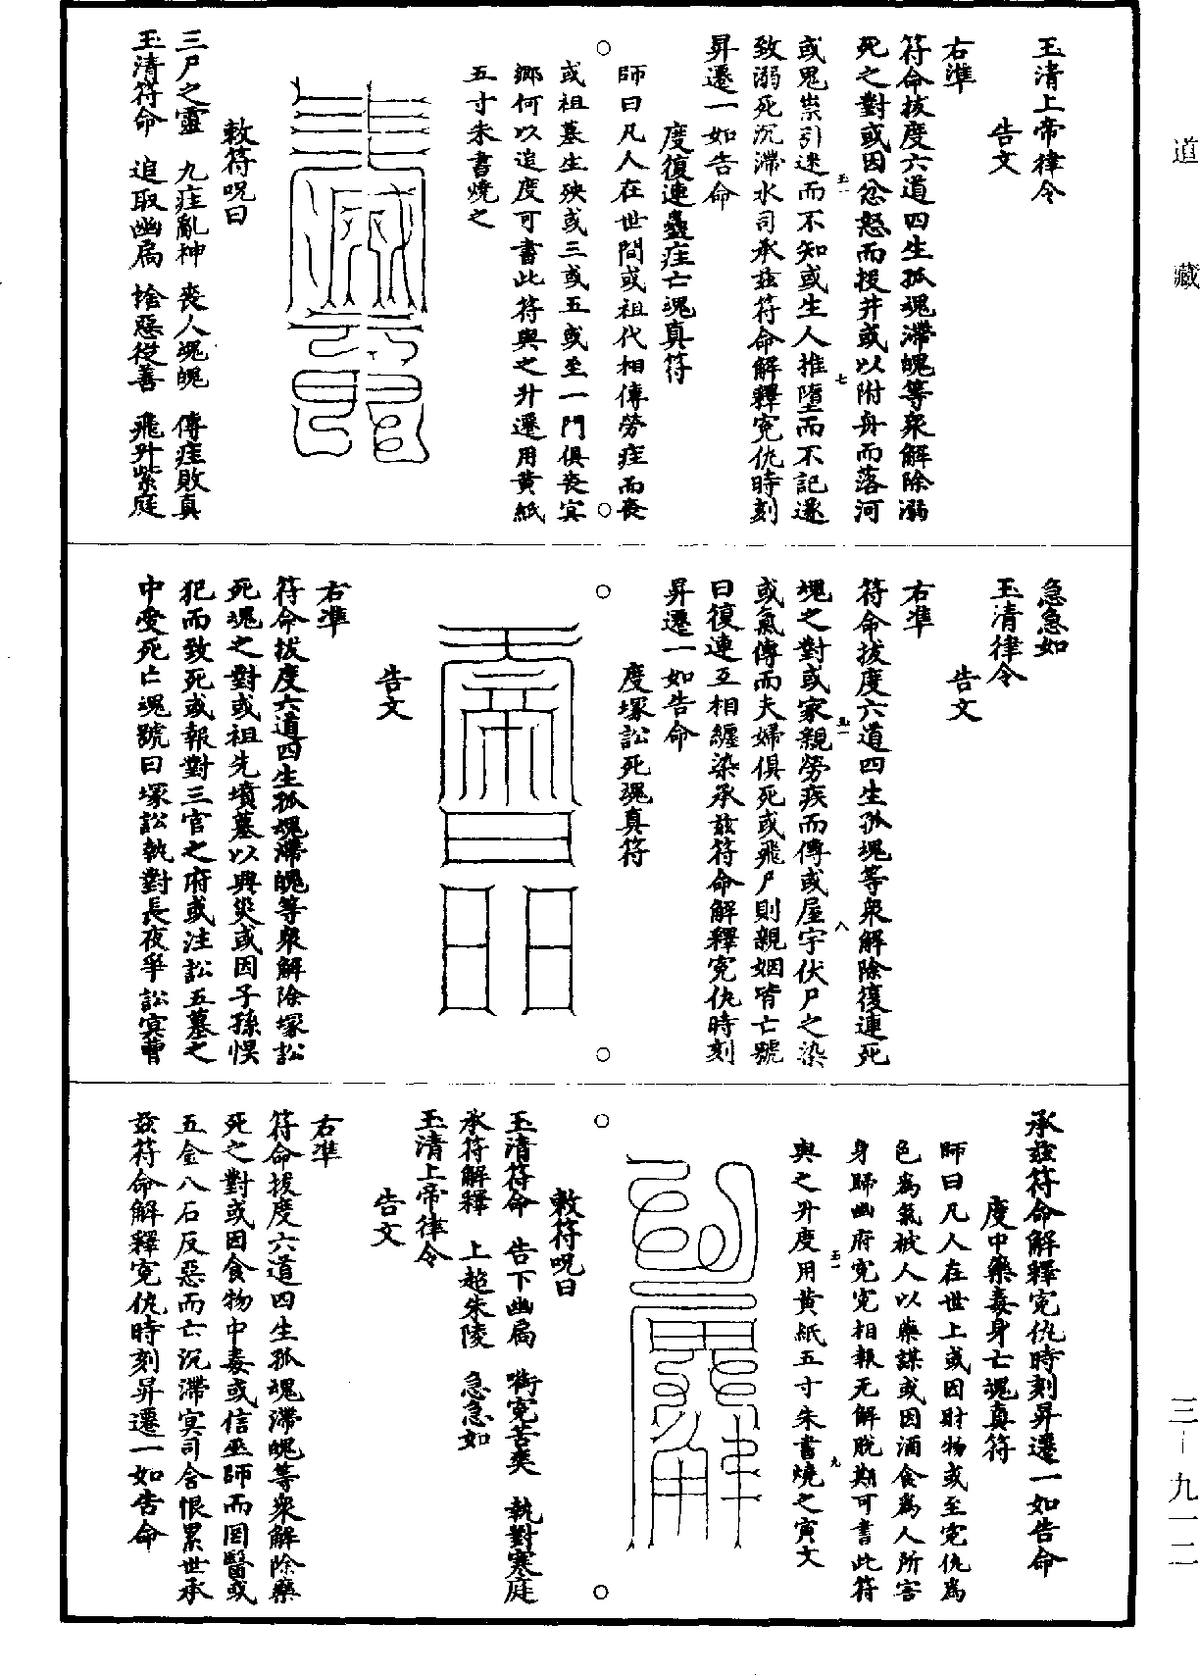 道藏
三—九一二
玉清上帝律令
告文
右準
符命拔度六道四生孤魂滯魄等衆解除溺
死之對或因忿怒而投井或以附舟而落河
或鬼祟引迷而不知或生人推墮而不記遂
致溺死沉滯水司承茲符命解釋寃仇時刻
昇遷一如告命
度復連蠱疰亡魂真符
師曰凡人在世間或祖代相傳勞疰而喪
或祖墓生殃或三或五或至一門俱喪寅
鄉何以追度可書此符與之升遷用黄紙
五寸朱書燒之
敕符呪曰
三尸之靈 九疰亂神 喪人魂魄 傳疰敗真
玉清符命 追取幽扃 捨惡從善 飛升紫庭
急急如
玉清律令
告文
右準
符命拔度六道四生孤魂等衆解除復連死
魂之對或家親勞疾而傳或屋宇伏尸之染
或氣傳而夫婦俱死或飛尸則親姻皆亡號
曰復連互相纏染承茲符命解釋寃仇時刻
昇遷一如告命
度塚訟死魂真符
告文
右準
符命拔度六道四生孤魂滯魄等衆解除塚訟
死魂之對或祖先墳墓以興災或因子孫悮
犯而致死或報對三官之府或注訟五墓之
中受死亡魂號曰塚訟執對長夜爭訟寅曹
承茲符命解釋寃仇時刻昇遷一如告命
度中藥毒身亡魂真符
師曰凡人在世上或因財物或至寃仇爲
色爲氣被人以藥謀或因酒食爲人所害
身歸幽府寃寃相報无解脫期可書此符
與之升度用黄紙五寸朱書燒之寅文
敕符呪曰
玉清符命 告下幽扃 啣寃苦爽 執對寒庭
承符解釋 上超朱陵 急急如
玉清上帝律令
告文
右準
符命拔度六道四生孤魂滯魄等衆解除藥
死之對或因食物中毒或信巫師而罔醫或
五金八石反惡而亡沉滯寅司含恨累世承
茲符命解釋寃仇時刻昇遷一如告命
玉一
七
玉一
八
玉一
九